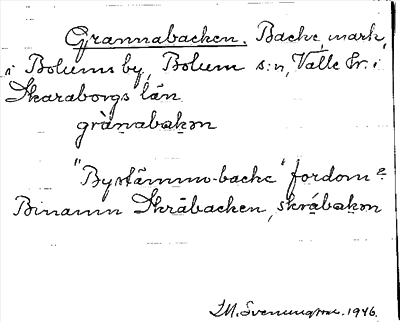 Grannabacken. Backe, mark,
i Bolums by, Bolum s:n, Valle hr. i
Skaraborgs län
grànabakən
"Bystämmo-backe" fordom?
Binamn Skråbacken, skrábakən
1946.